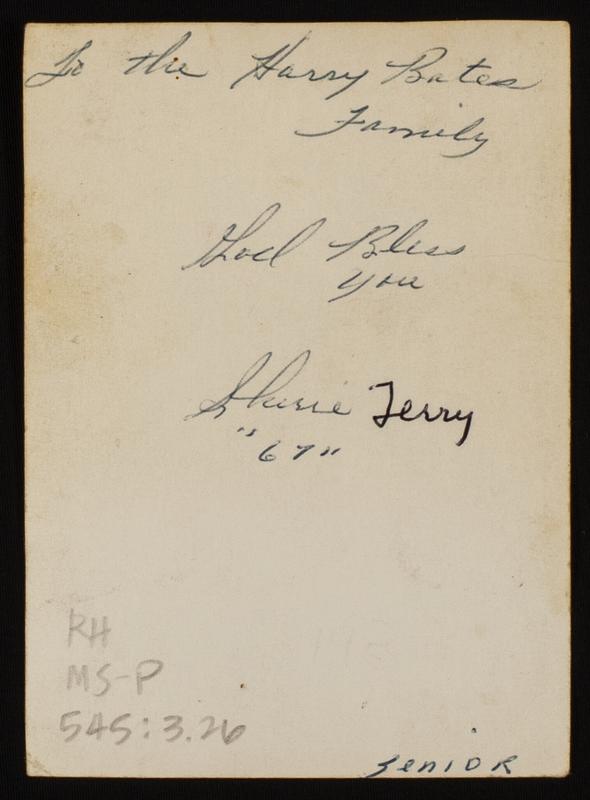 To the Harry Bates
Family
God Bless
you
Sherie Terry
"67"
RH
MS-P
545:3.26
senior